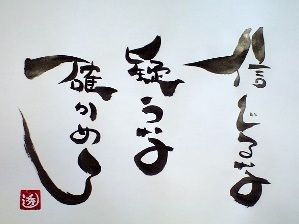 信じるな
疑うな
確かめろ